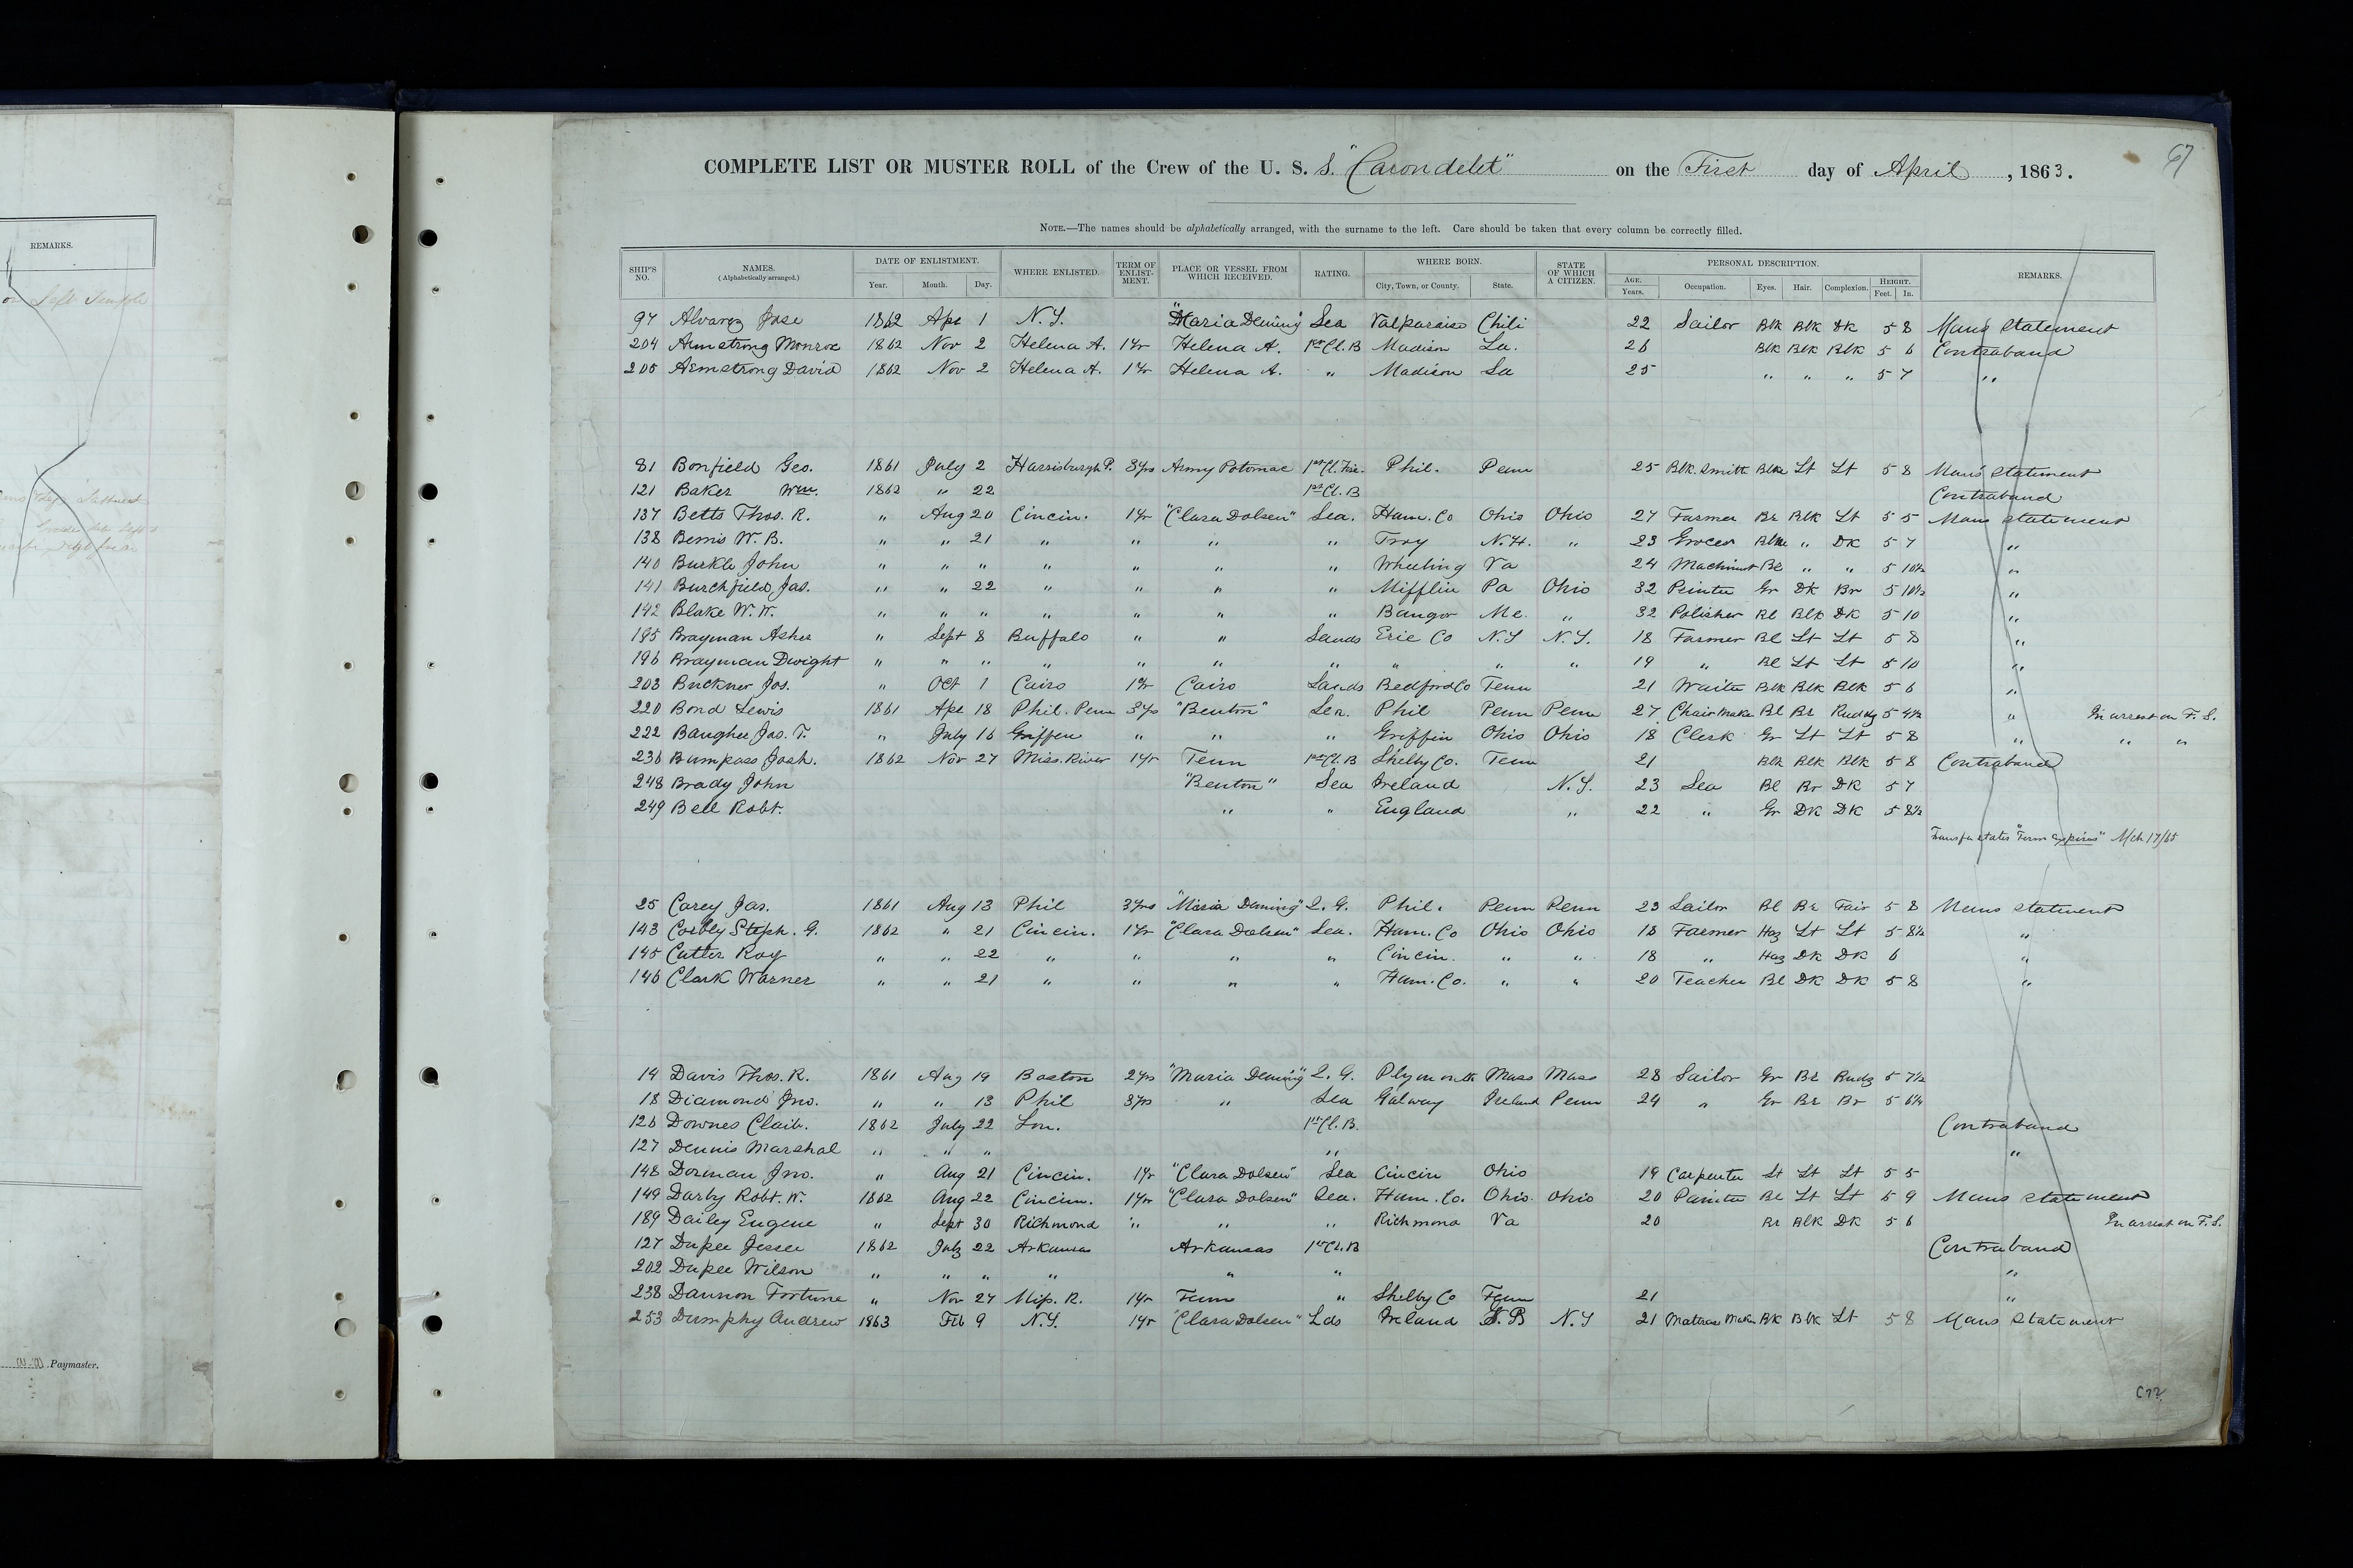 REMARKS.
Paymaster.
67
COMPLETE LIST OR MUSTER ROLL of the Crew of the U. S. S. "Carondelet" on the First day of April, 1863.
NOTE.—The names should be alphabetically arranged, with the surname to the left. Care should be taken that every column be correctly filled.
SHIP'S NO. NAMES. (Alphabetically arranged.) DATE OF ENLISTMENT. Year. Month. Day. WHERE ENLISTED. TERM OF ENLISTMENT. PLACE OR VESSEL FROM WHICH RECEIVED. RATING. WHERE BORN. City, Town, or County. State. STATE OF WHICH A CITIZEN. PERSONAL DESCRIPTION. AGE. Years. Occupation. Eyes. Hair. Complexion. HEIGHT. Feet. In. REMARKS.
97 Alvarez Jose 1862 Apl 1 N.Y. "Maria Deming" Sea Valparaiso Chili 22 Sailor Blk Blk Dk 5 8 Mans Statement
204 Armstrong Monroe 1862 Nov 2 Helena A. 1Yr Helena A. 1st Cl. B Madison La. 26 Blk Blk Blk 5 6 Contraband
205 Armstrong David 1862 Nov 2 Helena A. 1Yr Helena A. " Madison La 25 " " " 5 7 "
81 Bonfield Geo. 1861 July 2 Harrisburgh P. 3yrs Army Potomac 1st Cl. Fire. Phil. Penn 25 Blk. Smith Blue Lt Lt 5 8 Mans Statement
121 Baker Wm. 1862 " 22 1st Cl. B Contraband
137 Betts Thos. R. " Aug 20 Cincin. 1Yr "Clara Dolsen" Sea. Ham. Co Ohio Ohio 27 Farmer Br Blk Lt 5 5 Mans statement
138 Bemis W. B. " " 21 " " " " Troy N.H. " 23 Grocer Blue " DK 5 7 "
140 Burkle John " " " " " " " Wheeling Va 24 Machinist Bl " " 5 10½ "
141 Burchfield, Jas. " " 22 " " " " Mifflin Pa Ohio 32 Painter Gr Dk Br 5 10½ "
142 Blake W. W. " " " " " " " Bangor Me. " 32 Polisher Bl Blk DK 5 10 "
195 Brayman Asher " Sept 8 Buffalo " " Lands Erie Co N.Y N.Y. 18 Farmer Bl Lt Lt 5 8 "
196 Brayman Dwight " " " " " " " " " " 19 " Bl Lt Lt 5 10 "
203 Buckner Jos. " Oct 1 Cairo 1Yr Cairo Lands Bedford Co Tenn 21 Waiter Blk Blk Blk 5 6 "
220 Bond Lewis 1861 Apl 18 Phil. Penn 3ys "Benton" Sea. Phil Penn Penn 27 Chair Maker Bl Br Ruddy 5 4½ " In arrest on F. S.
222 Baughee Jas. T. " July 16 Griffen " " " Griffin Ohio Ohio 18 Clerk Gr Lt Lt 5 8 " " "
236 Bumpass Josh. 1862 Nov 27 Miss. River 1Yr Tenn 1st Cl. B Shelby Co. Tenn 21 Blk Blk Blk 5 8 Contraband
248 Brady John "Benton" Sea Ireland N.Y. 23 Sea Bl Br DK 5 7
249 Bell Robt. " " England " 22 " Gr DK DK 5 8½
Transfer states "Term expires" Mch 17/65
25 Carey Jas. 1861 Aug 13 Phil 3yrs "Maria Deming" Q. G. Phil. Penn Penn 23 Sailor Bl Br Fair 5 8 Mans statement
143 Corbly Steph. G. 1862 " 21 Cincin. 1Yr "Clara Dolsen" Sea. Ham. Co Ohio Ohio 18 Farmer Haz Lt Lt 5 8½ "
145 Cutter Roy " " 22 " " " " Cincin. " " 18 " Haz DK DK 6 "
146 Clark Warner " " 21 " " " " Ham. Co. " " 20 Teacher Bl DK DK 5 8 "
14 Davis Thos. R. 1861 Aug 19 Boston 2ys "Maria Deming" Q. G. Plymouth Mass Mass 28 Sailor Gr Br Rudy 5 7½
18 Diamond Jno. " " 13 Phil 3ys " Sea Galway Ireland Penn 24 " Gr Br Br 5 6¼
126 Downes Claib. 1862 July 22 Lou. 1st Cl. B. Contraband
127 Dennis Marshal " " " " "
148 Dorman Jno. " Aug 21 Cincin. 1Yr "Clara Dolsen" Sea Cincin Ohio 19 Carpenter Lt Lt Lt 5 5
149 Darby Robt. W. 1862 Aug 22 Cincinn. 1Yr "Clara Dolsen" Sea. Ham. Co. Ohio. Ohio 20 Painter Bl Lt Lt 5 9 Mans statement
189 Dailey Eugene " Sept 30 Richmond " " " Richmond Va 20 Br Blk DK 5 6 In arrest on F. S.
127 Dupee Jessee 1862 July 22 Arkansas Arkansas 1st Cl. B Contraband
202 Dupee Wilson " " " " " " "
238 Dannon Fortune " Nov 27 Miss. R. 1Yr Tenn " Shelby Co Tenn 21 "
253 Dumphy Andrew 1863 Feb 9 N.Y. 1Yr "Clara Dolsen" Lds Ireland G. B N.Y 21 Matrass Maker Bk Blk Lt 5 8 Mans Statement